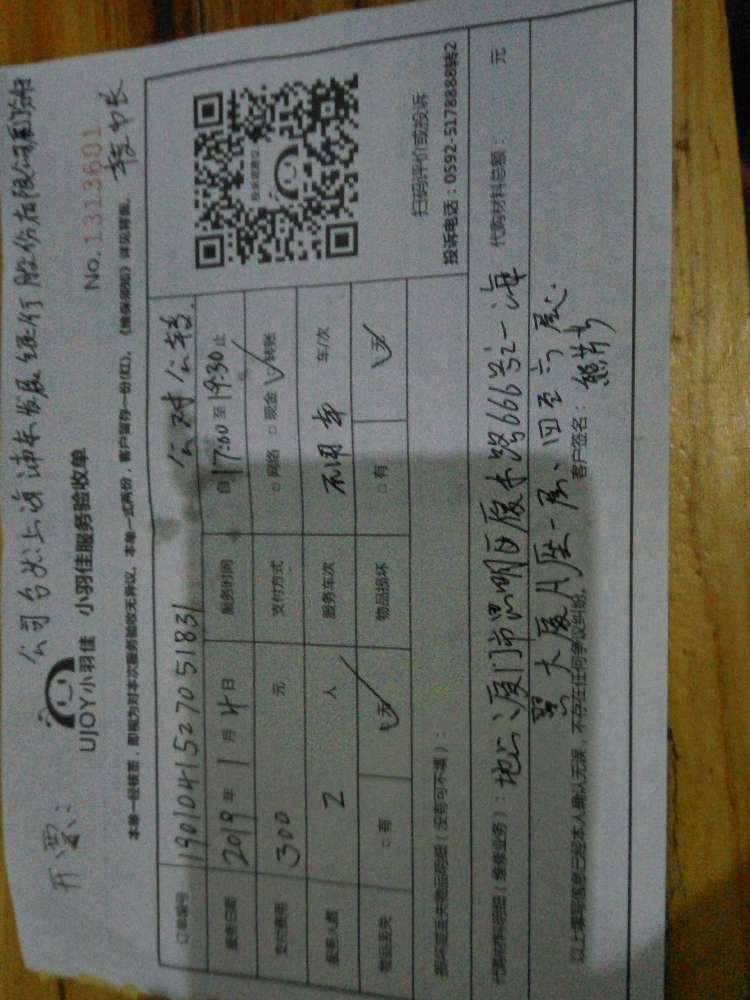 开票：
公司台头：上海浦东发展银行股份有限公司厦门分行
UJOY小羽佳 小羽佳服务验收单
No. 1313601
本单一经核签，即视为对本次服务验收无异议。本单一式两份，客户留存一份(红)。《维保须知》详见背面。
订单编号 1901041527051831 公对公转
服务日期 2019 年 1 月 4 日 服务时间 自 17:00 至 19:30 止
支付费用 300 元 支付方式 □ 网络 □ 现金 ✓转账
服务人数 2 人 服务车次 不用车 车/次
物品丢失 □ 有 ✓无 物品损坏 □ 有 ✓无
扫码评价或投诉
投诉电话：0592-5178888转2
损坏或丢失物品明细（没有可不填）：
代购材料明细（维修业务）：地址：厦门市思明区厦禾路666号之一海 代购材料总额： 元
翼大厦A座一层、四至六层.
以上填写信息已经本人确认无误，不存在任何争议纠纷。 客户签名：